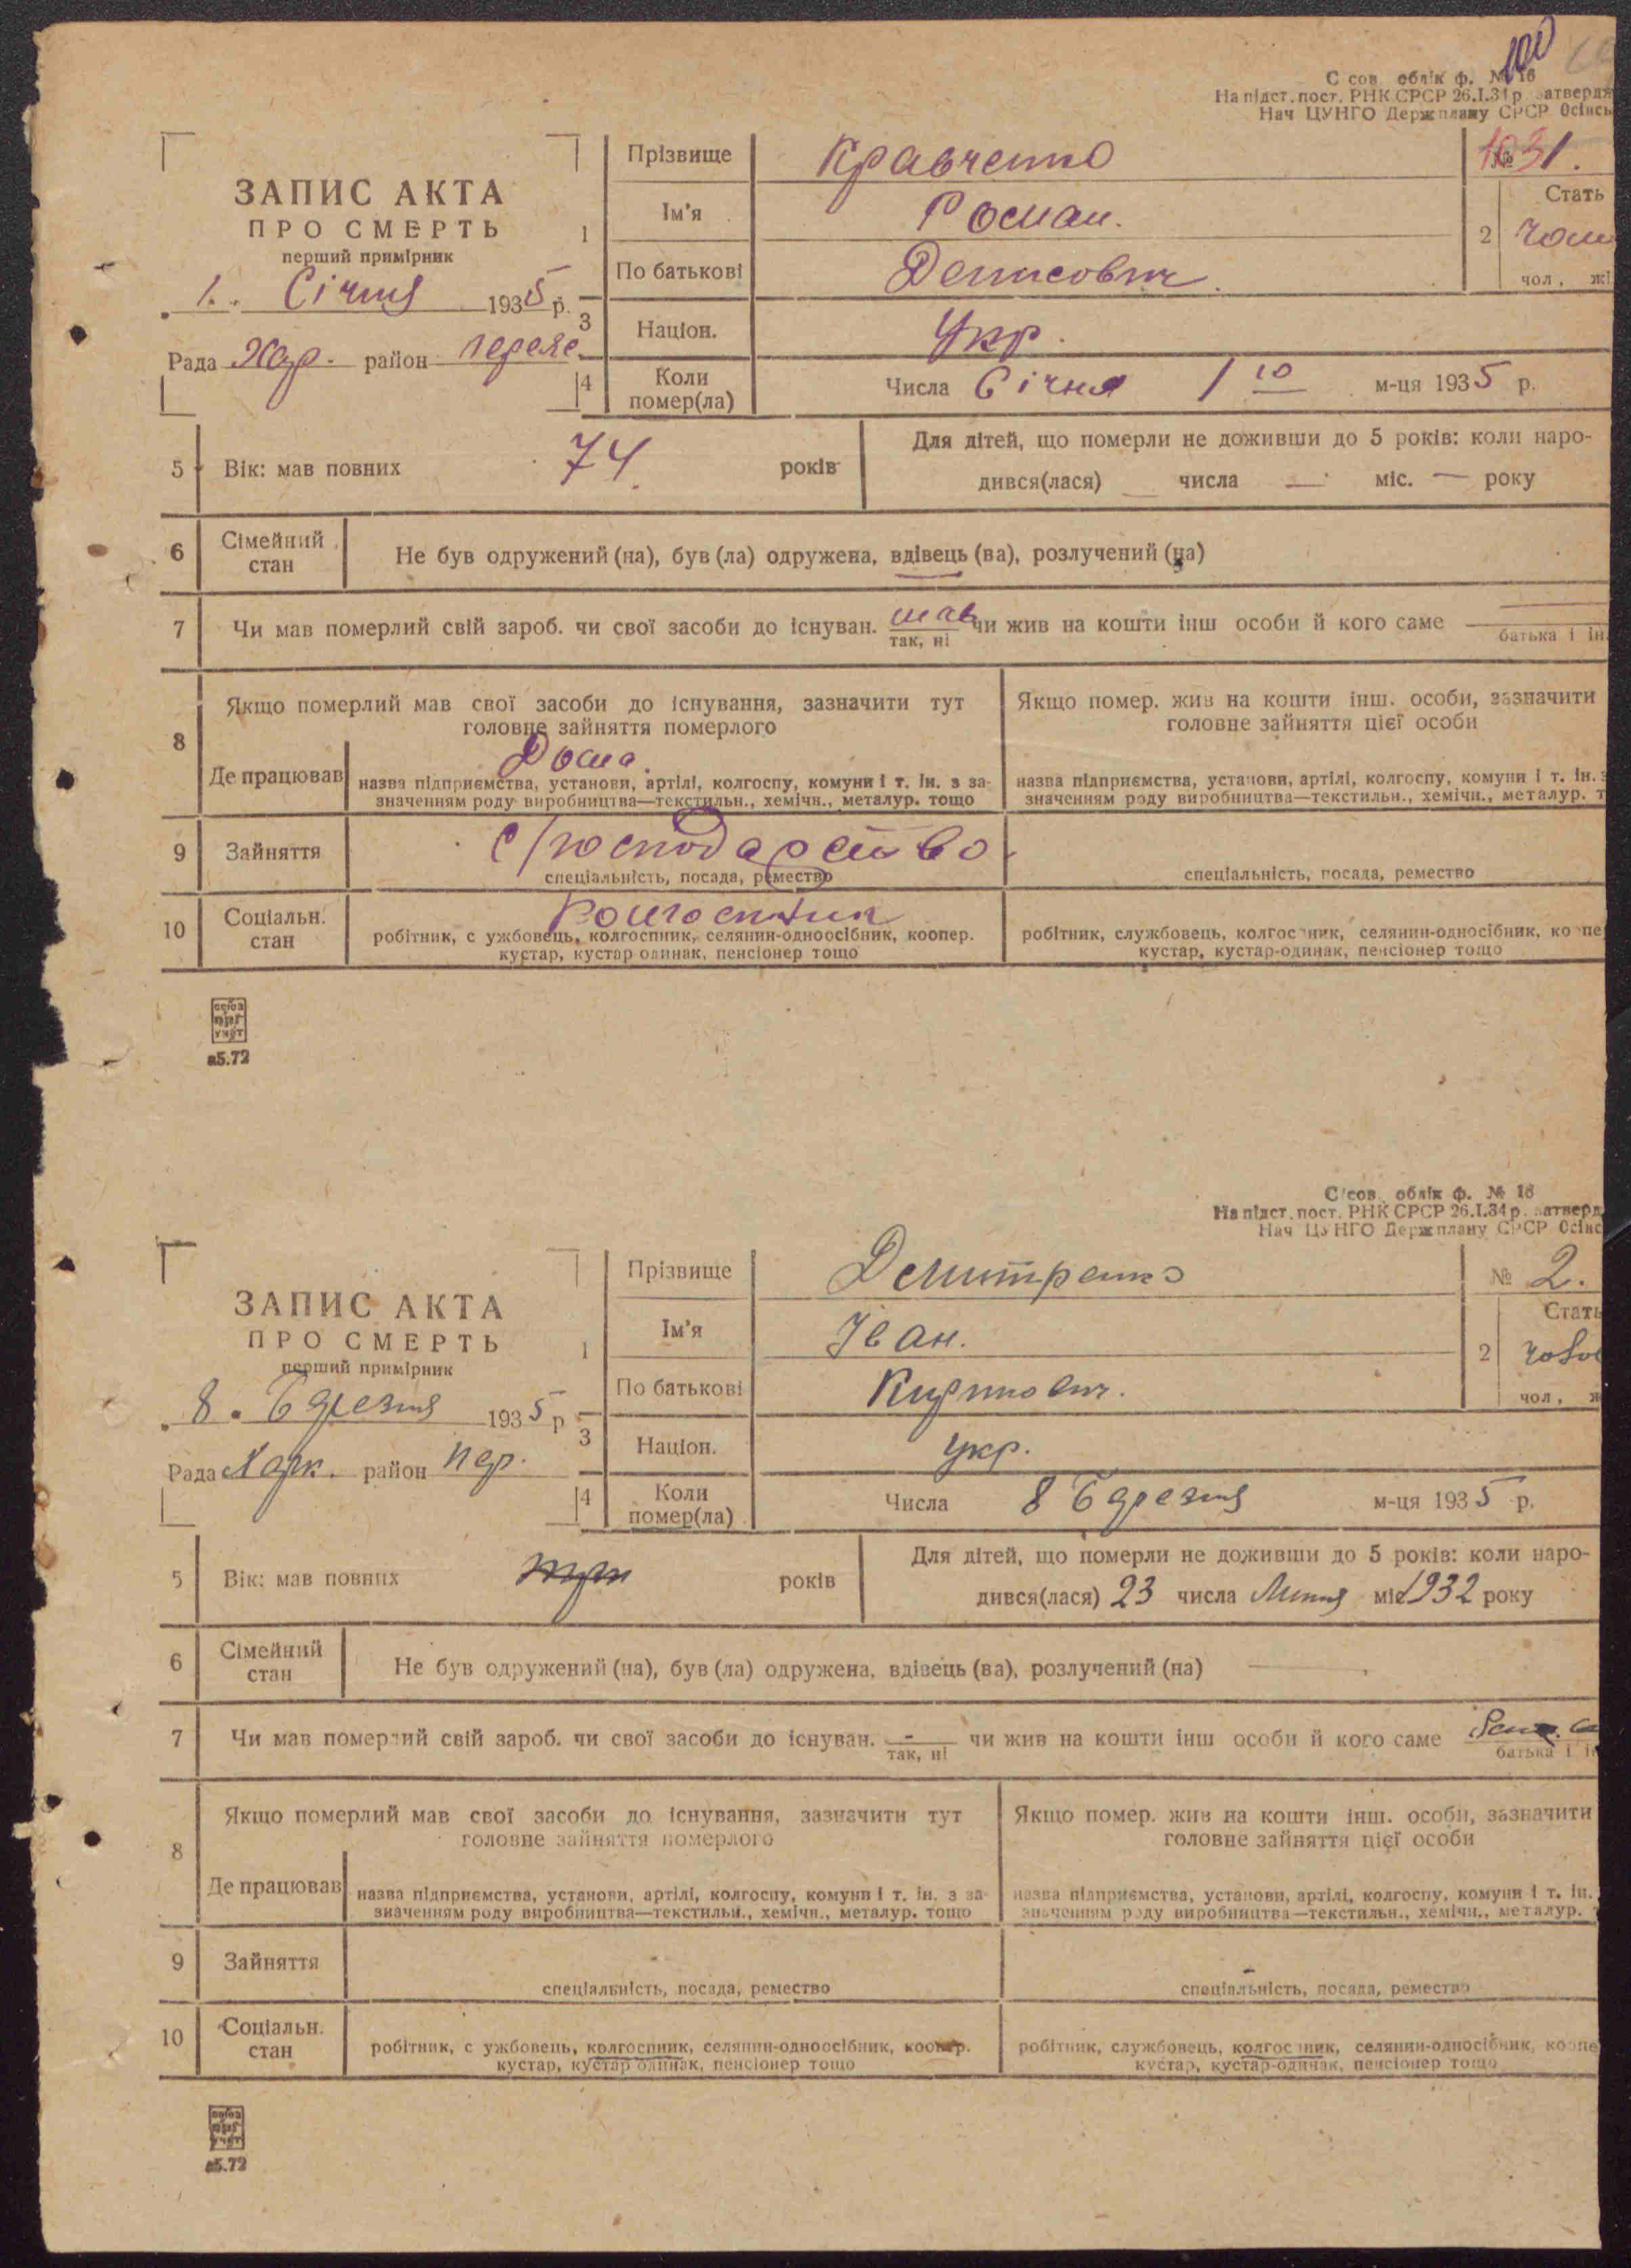 100
С сов. облік ф. № 16
На підст. пост. РНК СРСР 26.I.34 р. затвердя
Нач ЦУНГО Держплану СРСР Осінсь
ЗАПИС АКТА
ПРО СМЕРТЬ
перший примірник
1. Січня 1935 р.
Рада Хар. район Переяс.
1
Прізвище Кравченко
№ 1.
Ім'я Роман.
2 Стать
чол
чол, жі
По батькові Денисович.
3 Націон. Укр.
4 Коли помер(ла) Числа Січня 1 го м-ця 1935 р.
5 Вік: мав повних 74. років
Для дітей, що померли не доживши до 5 років: коли наро-
дився(лася) — числа — міс. — року
6 Сімейний стан Не був одружений (на), був (ла) одружена, вдівець (ва), розлучений (на)
7 Чи мав померлий свій зароб. чи свої засоби до існуван. мав чи жив на кошти інш особи й кого саме —
так, ні батька і ін
8 Якщо померлий мав свої засоби до існування, зазначити тут
головне зайняття померлого
Якщо помер. жив на кошти інш. особи, зазначити
головне зайняття цієї особи
Де працював Дома.
назва підприємства, установи, артілі, колгоспу, комуни і т. ін. з за-
значенням роду виробництва—текстильн., хемічн., металур. тощо
назва підприємства, установи, артілі, колгоспу, комуни і т. ін. з
значенням роду виробництва—текстильн., хемічн., металур. т
9 Зайняття С/господарство
спеціальність, посада, ремество
спеціальність, посада, ремество
10 Соціальн. стан Колгоспник
робітник, с ужбовець, колгоспник, селянин-одноосібник, коопер.
кустар, кустар одинак, пенсіонер тощо
робітник, службовець, колгоспник, селянин-односібник, ко пе
кустар, кустар-одинак, пенсіонер тощо
союз
учёт
а5.72
С сов. облік ф. № 16
На підст. пост. РНК СРСР 26.I.34 р. затверд
Нач ЦУНГО Держплану СРСР Осінс
ЗАПИС АКТА
ПРО СМЕРТЬ
перший примірник
8. Березня 1935 р
Рада Харк. район Пер.
1
Прізвище Демитренко
№ 2.
Ім'я Іван.
2 Стать
чолов
чол, ж
По батькові Кирилович.
3 Націон. Укр.
4 Коли помер(ла) Числа 8 Березня м-ця 1935 р.
5 Вік: мав повних років
Для дітей, що померли не доживши до 5 років: коли наро-
дився(лася) 23 числа Липня міс 1932 року
6 Сімейний стан Не був одружений (на), був (ла) одружена, вдівець (ва), розлучений (на) —
7 Чи мав померлий свій зароб. чи свої засоби до існуван. - чи жив на кошти інш особи й кого саме
так, ні батька і ін
8 Якщо померлий мав свої засоби до існування, зазначити тут
головне зайняття померлого
Якщо помер. жив на кошти інш. особи, зазначити
головне зайняття цієї особи
Де працював
назва підприємства, установи, артілі, колгоспу, комуни і т. ін. з за-
значенням роду виробництва—текстильн., хемічн., металур. тощо
назва підприємства, установи, артілі, колгоспу, комуни і т. ін.
значенням роду виробництва—текстильн., хемічн., металур.
9 Зайняття
спеціальність, посада, ремество
спеціальність, посада, ремество
10 Соціальн. стан
робітник, с ужбовець, колгоспник, селянин-одноосібник, коопер.
кустар, кустар одинак, пенсіонер тощо
робітник, службовець, колгоспник, селянин-односібник, коопе
кустар, кустар-одинак, пенсіонер тощо
союз
учёт
а5.72